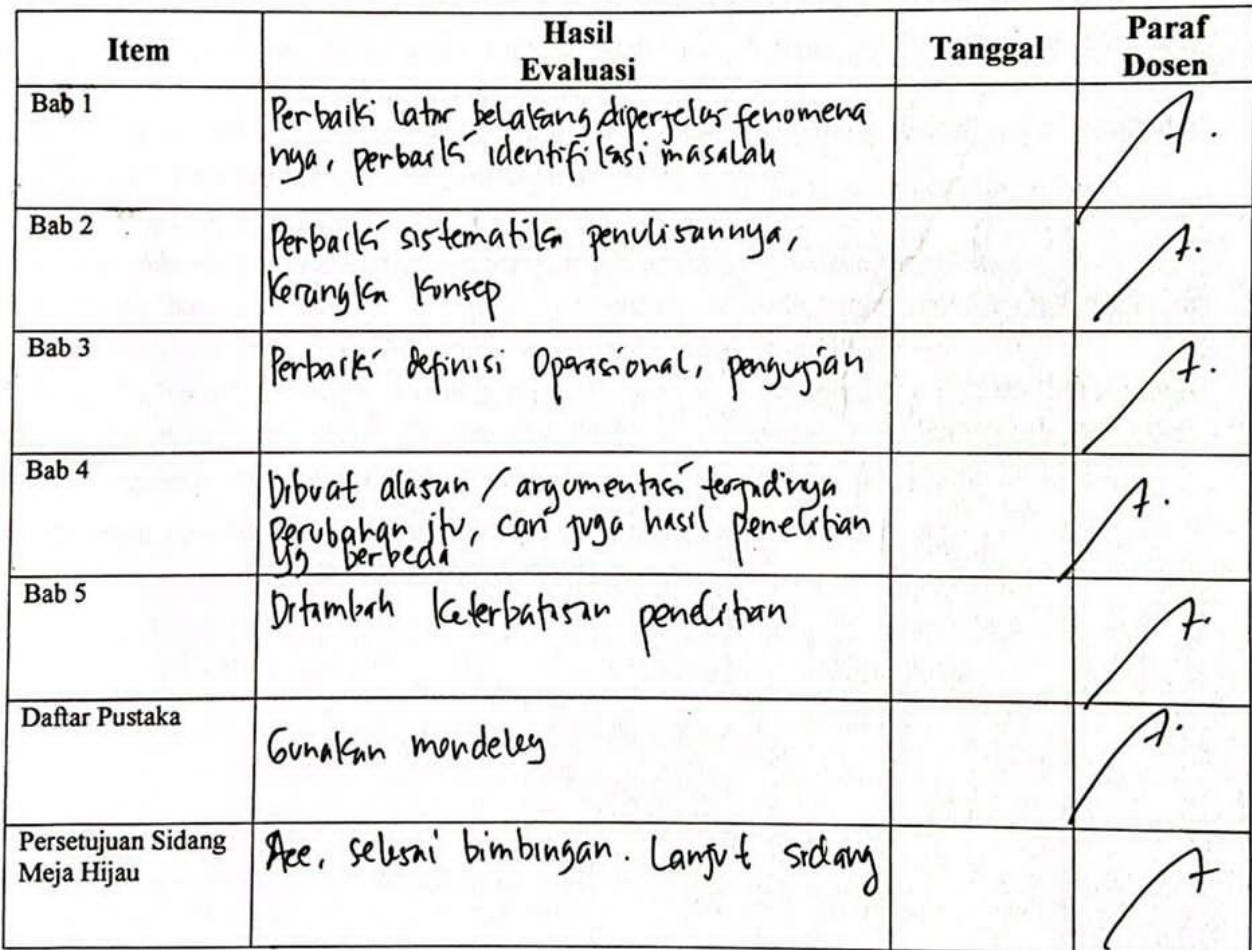 Item
Hasil
Evaluasi
Tanggal
Paraf
Dosen
Bab 1
Perbaiki latar belakang, diperjelas fenomena
nya, perbaiki identifikasi masalah
Bab 2
Perbaiki sistematika penulisannya,
Kerangka Konsep
Bab 3
Perbaiki definisi Operasional, pengujian
Bab 4
Dibuat alasan / argumentasi terjadinya
Perubahan itu, cari juga hasil penelitian
yg berbeda
Bab 5
Ditambah Keterbatasan penelitian
Daftar Pustaka
Gunakan mendeley
Persetujuan Sidang
Meja Hijau
Acc, selesai bimbingan. Lanjut sidang